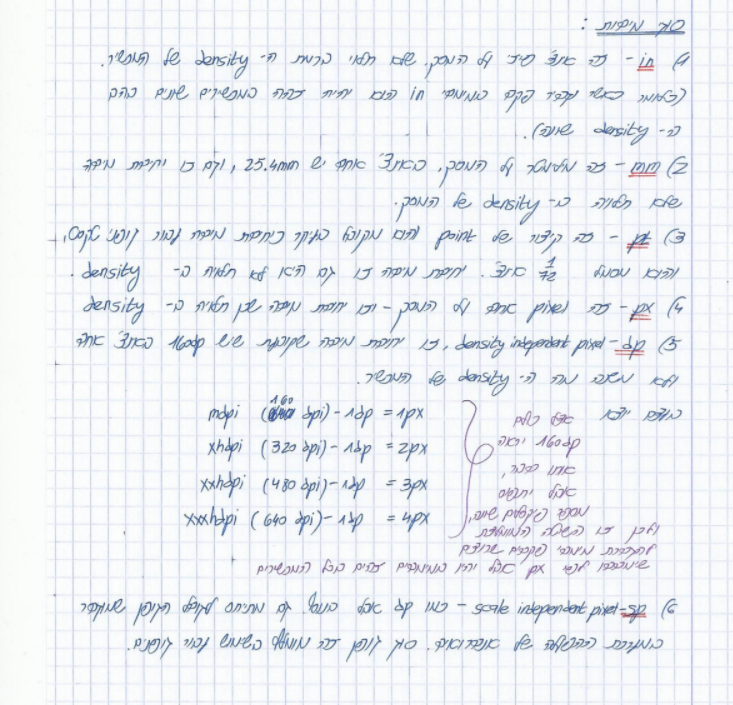 סוגי מידות :
1) in - זה אינצ' פיזי על המסך. שלא תלוי ברמת ה- density של המכשיר.
(כלומר כאשר נעבוד פקד במימדי in הוא יהיה זהה במכשירים שונים בהם
ה- density שונה).
2) mm - זה מילימטר על המסך, באינצ' אחד יש 25.4mm, וגם זו יחידת מידה
שלא תלויה ב- density של המסך.
3) pt - זה קיצור של point והוא מקובל בעיקר כיחידת מידה עבור גופני טקסט,
והוא מסמל 1/72 אינצ'. יחידת מידה זו גם היא לא תלויה ב- density.
4) px - זה pixel אחד על המסך - וזו יחידת מידה שכן תלויה ב- density
5) dp - density independent pixel, זו יחידת מידה שקובעת שיש 160dp באינצ' אחד
ולא משנה מה ה- density של המכשיר.
בעצם יוצא
mdpi (160 dpi) - 1dp = 1px
xhdpi (320 dpi) - 1dp = 2px
xxhdpi (480 dpi) - 1dp = 3px
xxxhdpi (640 dpi) - 1dp = 4px
אצל כולם
160dp יראה
אותו הדבר,
אבל יתפוס
מספר פיקסלים שונה,
ולכן זו השיטה המומלצת
להגדרת מימדי פקדים שרוצים
שימתחו לפי px אבל יהיו במימדים זהים בכל המכשירים
6) sp - scale independent pixel - כמו dp אבל בנוסף גם מתייחס לגודל הפונט שמוגדר
במערכת ההפעלה של אנדרואיד. סוג גופן זה מומלץ בשימוש עבור גופנים.